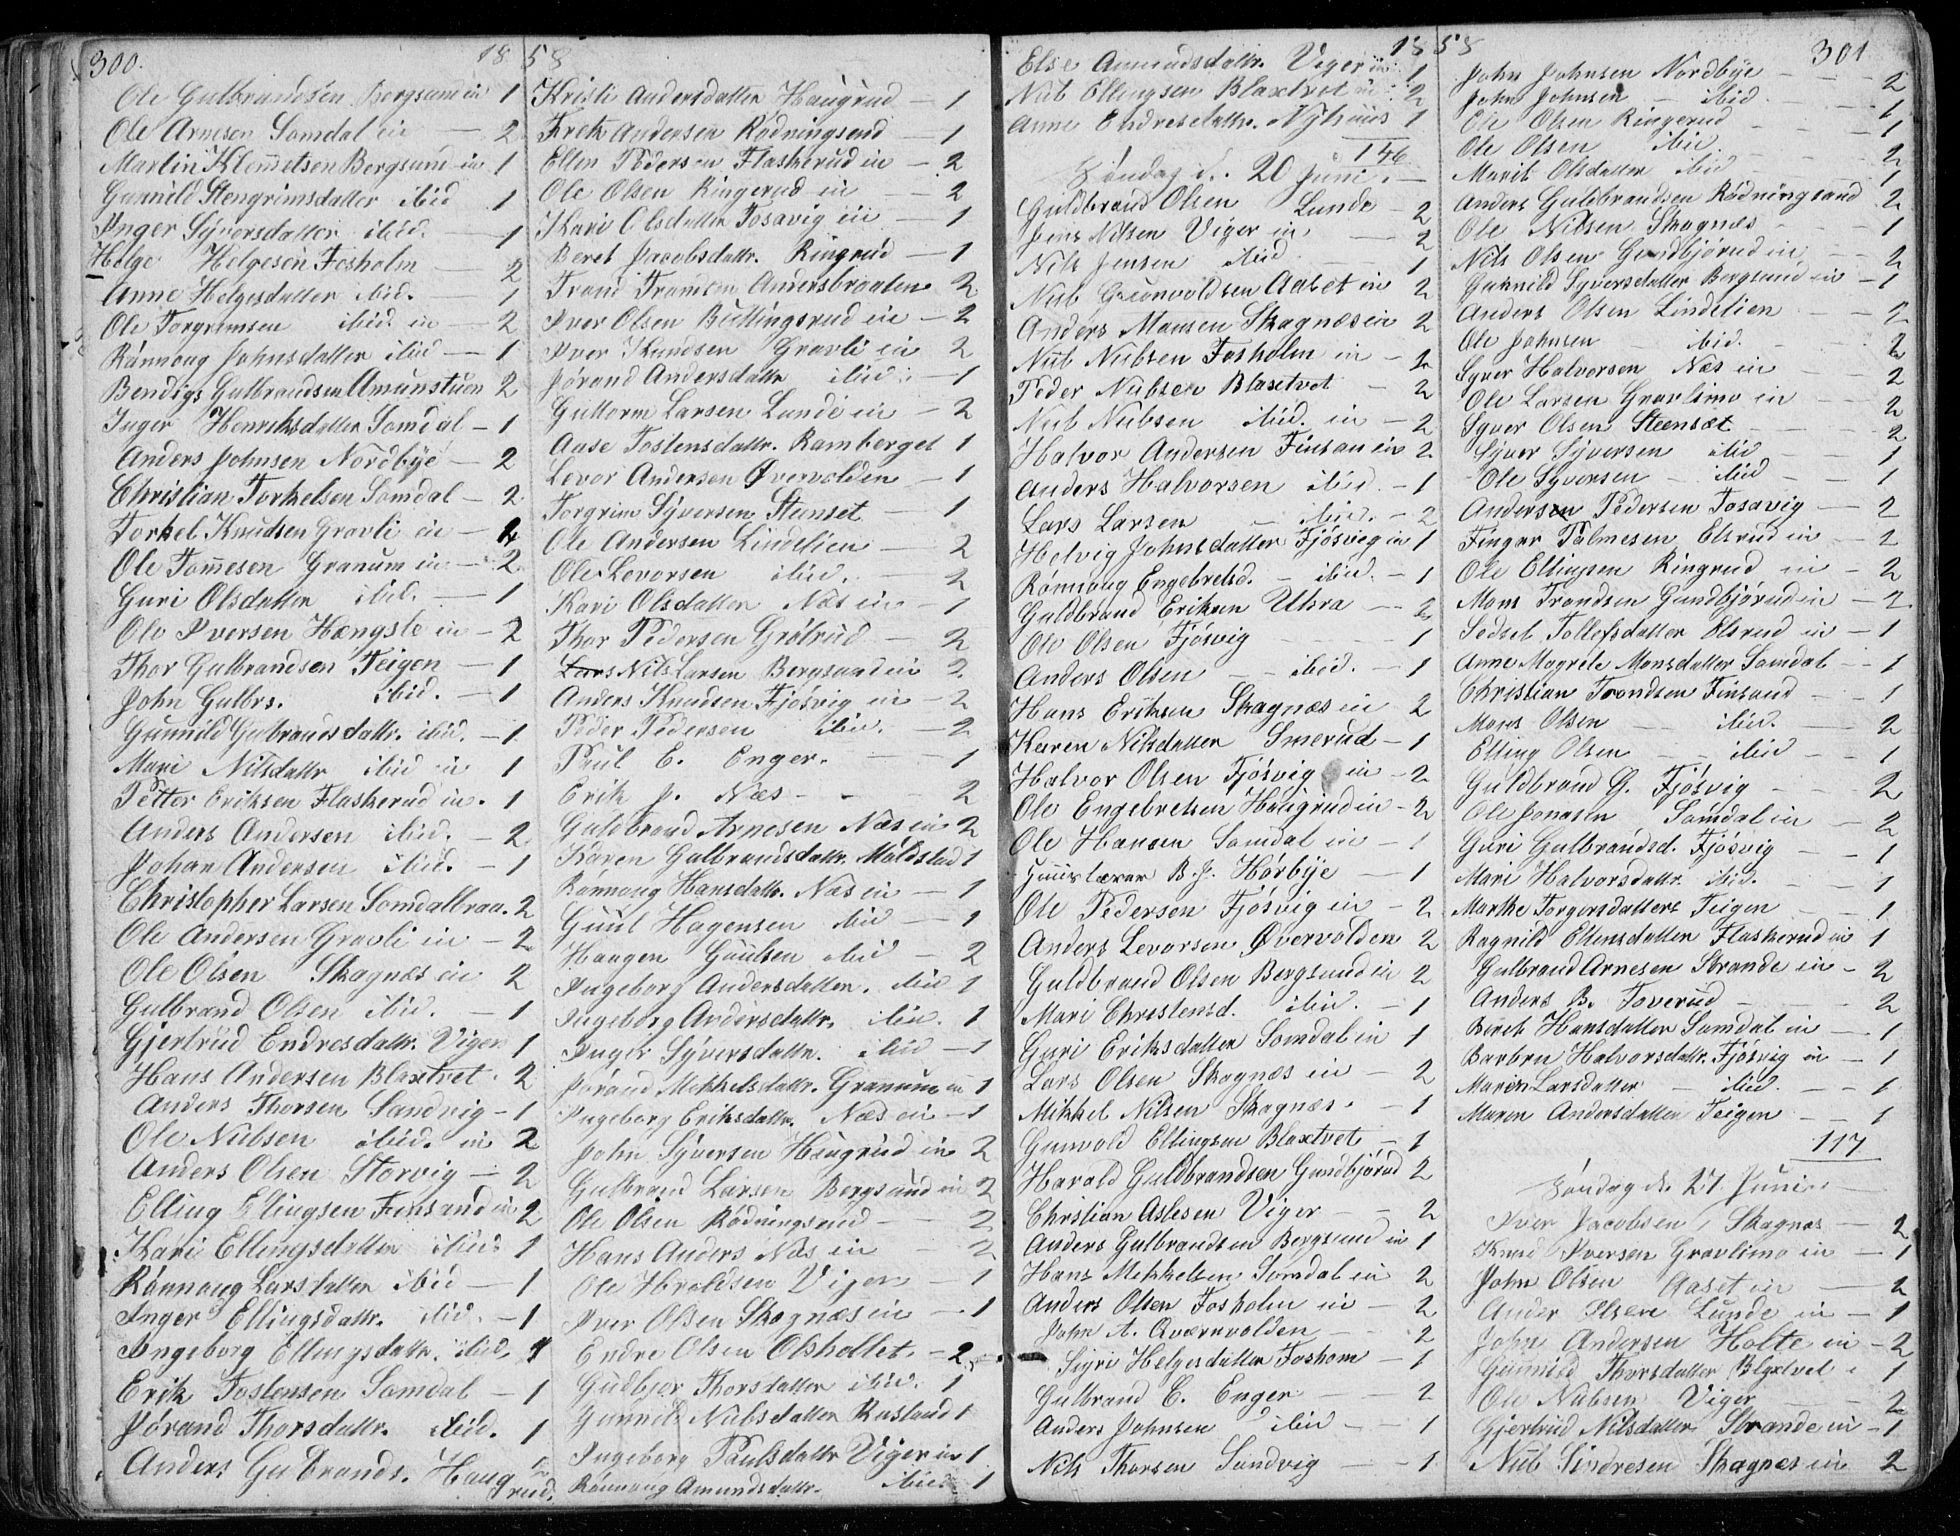 300.
1858
Ole Gulbrandsen Bergsund in 1
Ole Arnesen Somdal in — 2
Martin Klemmetsen Bergsund in 1
Gunnild Stengrimsdatter ibid 1
Inger Syversdatter ibid. — 1
Helge Helgesen Fosholm — 2
Anne Helgesdatter ibid. — 1
Ole Torgrimsen ibid. in — 2
Rønnoug Johnsdatter ibid — 1
Bendigs Gulbrandsen Amunstuen 2
Inger Henriksdatter Somdal — 1
Anders Johnsen Nordbye — 2
Christian Torkelsen Somdal — 2
Torkel Knudsen Gravli in — 2
Ole Tommesen Granum in — 2
Guri Olsdatter ibid. — 1
Ole Iversen Hængsle in — 2
Thor Gulbrandsen Teigen — 1
John Gulbrs. ibid. — 1
Gunnild Gulbrandsdattr. ibid. — 1
Mari Nilsdattr ibid in 1
Petter Eriksen Flaskerud in. 1
Anders Andersen ibid. — 2
Johan Andersen ibid. — 1
Christopher Larsen Somdalbraa. 2
Ole Andersen Gravli in — 2
Ole Olsen Skagnæs in 2
Gulbrand Olsen ibid. — 1
Gjertrud Endresdattr. Viger 1
Hans Andersen Blaxtvet. 2
Anders Thorsen Sandvig — 1
Ole Nubsen ibid. in 2
Anders Olsen Storvig — 2
Elling Ellingsen Finsand in 2
Kari Ellingsdatter ibid. 1
Rønnoug Larsdatter ibid — 1
Inger Ellingsdattr. ibid. — 1
Ingeborg Ellingsdattr. ibid. 1
Erik Tostensen Somdal — 1
Jørand Thorsdattr. ibid. 1
Anders Gulbrands. Haugrud.
Kristi Andersdatter Haugrud — 1
Fredr Andersen Rødningsand — 1
Ellen Pedersen Flaskerud in — 2
Ole Olsen Ringerud in — 2
Kari Olsdatter Tosavig in — 1
Beret Jacobsdattr. Ringrud — 1
Trond Tronsen Andersbraaten 2
Iver Olsen Buttingsrud in — 2
Iver Knudsen Gravli in — 2
Jørand Andersdattr ibid. — 1
Guttorm Larsen Lunde in — 2
Aase Tostensdattr. Ramberget 1
Levor Andersen Øvervolden — 1
Torgrim Syversen Stenset — 1
Ole Andersen Lindelien — 2
Ole Levorsen ibid. — 2
Kari Olsdatter Næs in — 1
Thor Pedersen Grøtrud — 2
Nils Larsen Bergsund in 2
Anders Knudsen Fjøsvig in — 2
Peder Pedersen ibid. — 2
Paul E. Enger. — 1
Erik J. Næs — 2
Guldbrand Arnesen Næs in 2
Karen Gulbrandsdattr. Moldstad 1
Rønnoug Hansdattr. Næs in — 1
Guul Hagensen ibid — 1
Haagen Guulsen ibid — 2
Ingeborg Andersdatter. ibid 1
Ingeborg Andersdattr. ibid. 1
Inger Syversdattr. ibid — 1
Jørand Mikkelsdattr. Granum in 1
Ingeborg Eriksdattr. Næs in — 1
John Syversen Haugrud in 2
Gulbrand Larsen Bergsund in 2
Ole Olsen Rødningsand — 2
Hans Anders Næs in — 2
Ole Haraldsen Viger — 1
Iver Olsen Skagnæs in — 1
Endre Olsen Olshollet. — 2
Gudbjør Thorsdatter ibid. 1
Gunnild Nubsdatter Rusland 1
Ingeborg Paulsdattr Viger in 1
Rønnoug Amundsdattr. ibid. — 1
1858
301
Else Amundsdattr. Viger in 1
Nub Ellingsen Blaxtvet in 2
Anne Endresdattr. Nyhuus 1
146
Søndag d. 20 Juni.
Guldbrand Olsen Lunde 2
Jens Nilsen Viger in — 2
Nils Jensen ibid — 1
Nub Gunvoldsen Aaset in 2
Anders Monsen Skagnæs in 2
Nub Nubsen Fosholm in — 2
Peder Nubsen Blaxtvet — 2
Nub Nubsen ibid. in — 2
Halvor Andersen Finsan in 2
Anders Halvorsen ibid. — 1
Lars Larsen ibid. — 2
Helvig Johnsdatter Fjøsvig in 1
Rønnoug Engebretsd. — ibid. — 1
Guldbrand Eriksen Uhra — 2
Ole Olsen Fjøsvig — 1
Anders Olsen — ibid. — 1
Hans Eriksen Skagnæs in 2
Karen Nilsdatter Smerud — 1
Halvor Olsen Fjøsvig in — 2
Ole Engebretsen Haugrud in — 2
Ole Hansen Somdal in — 1
B. J. Hørbye — 1
Ole Pedersen Fjøsvig in — 2
Anders Levorsen Øvervolden 2
Guldbrand Olsen Bergsund in 2
Mari Christensd. ibid. — 1
Guri Eriksdatter Somdal in 1
Lars Olsen Skagnæs in — 2
Mikkel Nilsen Skagnæs. — 1
Gunvold Ellingsen Blaxtvet — 1
Harald Guldbrandsen Gundbjørud 2
Christian Aslesen Viger — 2
Anders Gulbrandsen Bergsund in 1
Hans Mekkelsen Somdal in 2
Anders Olsen Fosholm in — 2
John A. Qværnvolden — 2
Sigri Helgesdatter Foshom — 1
Gulbrand E. Enger — 2
Anders Johnsen ibid — 1
Nils Thorsen Sandvig — 1
John Johnsen Nordbye — 2
John Johnsen — ibid — 1
Ole Olsen Ringerud — 1
Ole Olsen ibid. — 2
Marit Olsdatter ibid — 1
Anders Guldbrandsen Rødningsand 2
Ole Nilsen Skagnæs — 1
Nils Olsen Gundbjørud in — 2
Gunnild Syversdatter Bergsund in — 1
Anders Olsen Lindelien — 2
Ole Johnsen — ibid. — 2
Syver Halvorsen Næs in — 2
Ole Larsen Gravlimo in — 2
Syver Olsen Steenset — 2
Syver Syversen ibid — 1
Ole Syversen — ibid — 1
Anders Pedersen Tosavig — 2
Fingar Palmesen Elsrud in — 2
Ole Ellingsen Ringrud in — 2
Mons Trondsen Gundbjørud in — 2
Sedsel Tollefsdatter Elsrud in — 1
Anne Magrete Monsdatter Somdal — 1
Christian Trondsen Finsand — 1
Mons Olsen — ibid. — 2
Elling Olsen — ibid — 1
Guldbrand G. Fjøsvig — 2
Ole Jonasen Somdal in — 2
Guri Gulbrandsd. Fjøsvig — 1
Mari Halvorsdattr. ibid. — 1
Marthe Torgersdatter Teigen — 1
Ragnild Ellensdatter Flaskerud in 1
Gulbrand Arnesen Strande in — 2
Anders B. Toverud — 2
Birit Hansdatter Somdal in — 1
Barbru Halvorsdattr. Fjøsvig in — 1
Maren Larsdatter — ibid. — 1
Maren Andersdatter Teigen — 1
117
Søndag d. 27 Juni.
Iver Jacobsen, Skagnæs — 2
Knud Iversen Gravlimo in — 1
John Olsen Aaset in — 2
Ander Olsen Lunde in — 1
John Andersen Holte in — 2
Gunnild Thorsdatter Blaxtvet — 1
Ole Nubsen Viger — 2
Gjertrud Nilsdatter Strande in — 1
Nub Sindresen Skagnæs in 2